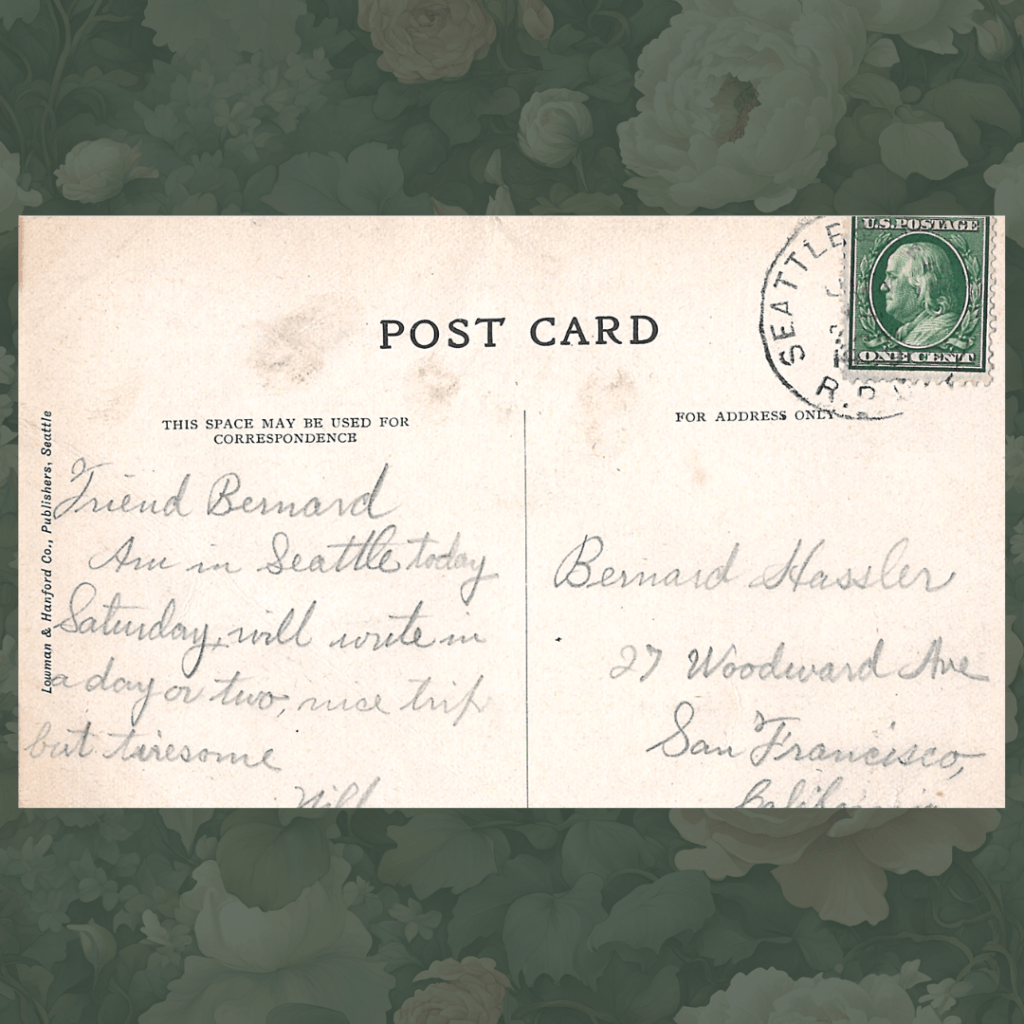 U.S. POSTAGE
ONE CENT
SEATTLE
R.P.
POST CARD
THIS SPACE MAY BE USED FOR
CORRESPONDENCE
FOR ADDRESS ONLY
Lowman & Hanford Co., Publishers, Seattle
Friend Bernard
Am in Seattle today
Saturday, will write in
a day or two, nice trip
but tiresome
Will
Bernard Hassler
27 Woodward Ave
San Francisco,
California